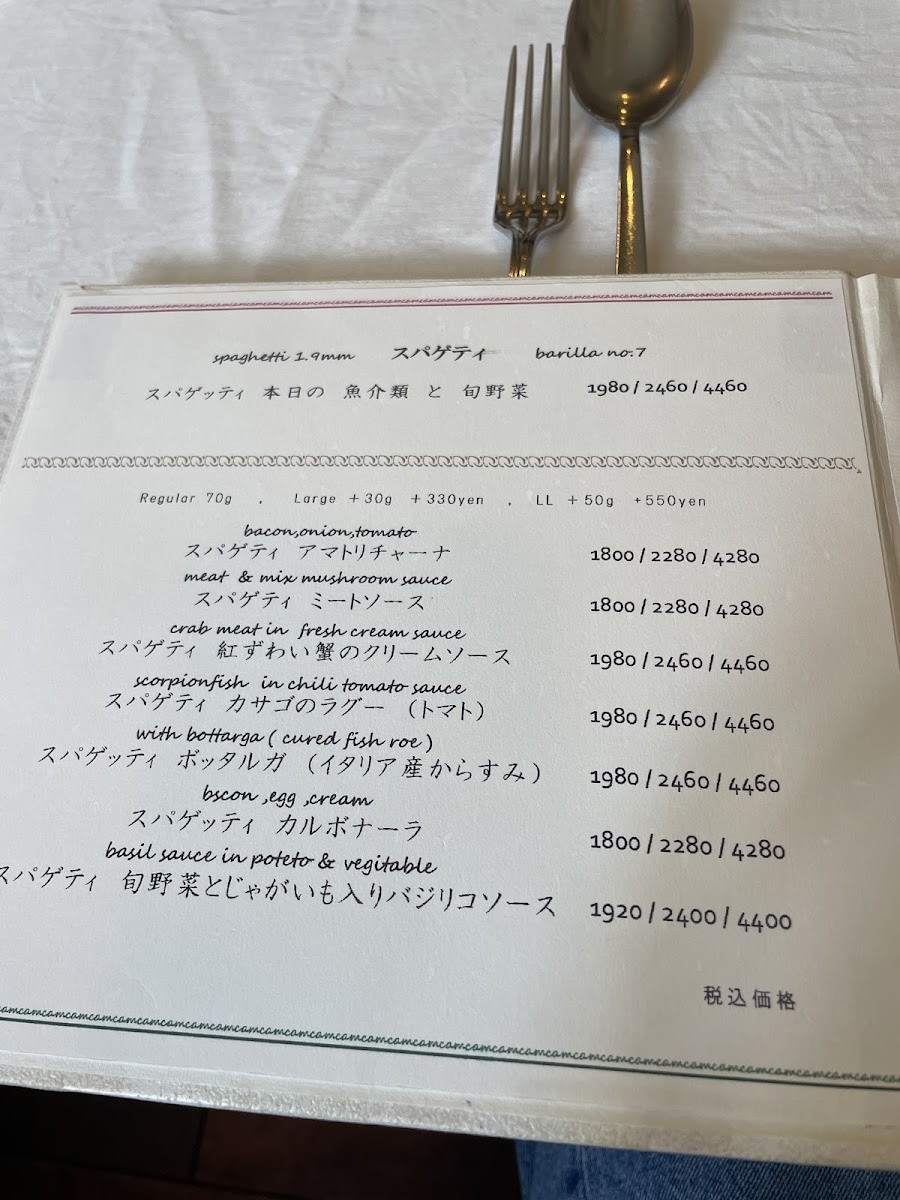 spaghetti 1.9mm スパゲティ barilla no.7
スパゲッティ 本日の 魚介類 と 旬野菜 1980 / 2460 / 4460
Regular 70g , Large +30g +330yen , LL +50g +550yen
bacon,onion,tomato
スパゲティ アマトリチャーナ 1800 / 2280 / 4280
meat & mix mushroom sauce
スパゲティ ミートソース 1800 / 2280 / 4280
crab meat in fresh cream sauce
スパゲティ 紅ずわい蟹のクリームソース 1980 / 2460 / 4460
scorpionfish in chili tomato sauce
スパゲティ カサゴのラグー (トマト) 1980 / 2460 / 4460
with bottarga ( cured fish roe )
スパゲッティ ボッタルガ (イタリア産からすみ) 1980 / 2460 / 4460
bscon ,egg ,cream
スパゲッティ カルボナーラ 1800 / 2280 / 4280
basil sauce in poteto & vegitable
スパゲティ 旬野菜とじゃがいも入りバジリコソース 1920 / 2400 / 4400
税込価格